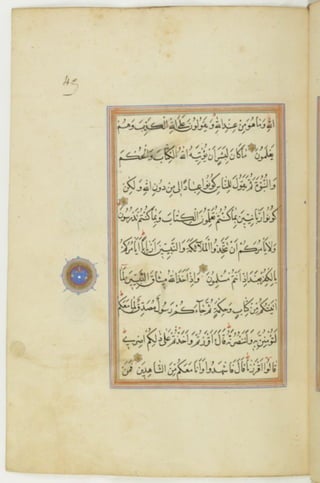 43
الله وما هو من عند الله ويقولون على الله الكذب وهم
يعلمون ما كان لبشر ان يؤتيه الله الكتاب والحكم
والنبوة ثم يقول للناس كونوا عبادا لى من دون الله ولكن
كونوا ربانيين بما كنتم تعلمون الكتاب وبما كنتم تدرسون
ولا يأمركم ان تتخذوا الملائكة والنبيين اربابا ايأمركم
بالكفر بعد اذ انتم مسلمون واذ اخذ الله ميثاق النبيين لما
اتيتكم من كتاب وحكمة ثم جاءكم رسول مصدق لما معكم
لتؤمنن به ولتنصرنه قال ءاقررتم واخذتم على ذلكم اصرى
قالوا اقررنا قال فاشهدوا وانا معكم من الشاهدين فمن